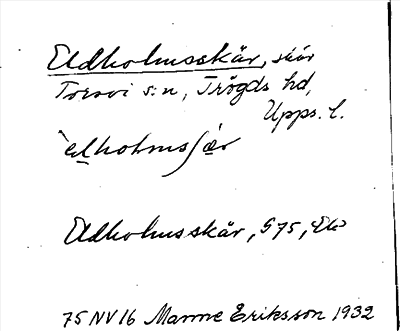 Eldholmsskär, skär
Torsvi s:n, Trögds hd,
Upps. l.
`elholmsʃær
Eldholmsskär, G75, Ek
75 NV 16 Manne Eriksson 1932